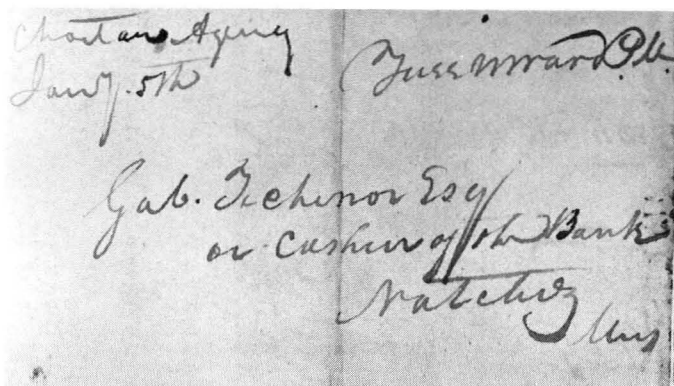 Choctaw Agency
Jany. 5th
Free Wm Ward P.M.
Gab. Tichenor Esq
or Cashier of the Bank
Natchez
Miss